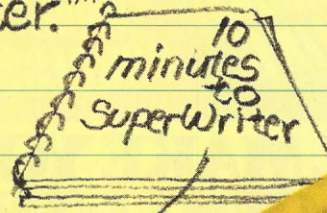 er."
10
minutes
to
SuperWriter